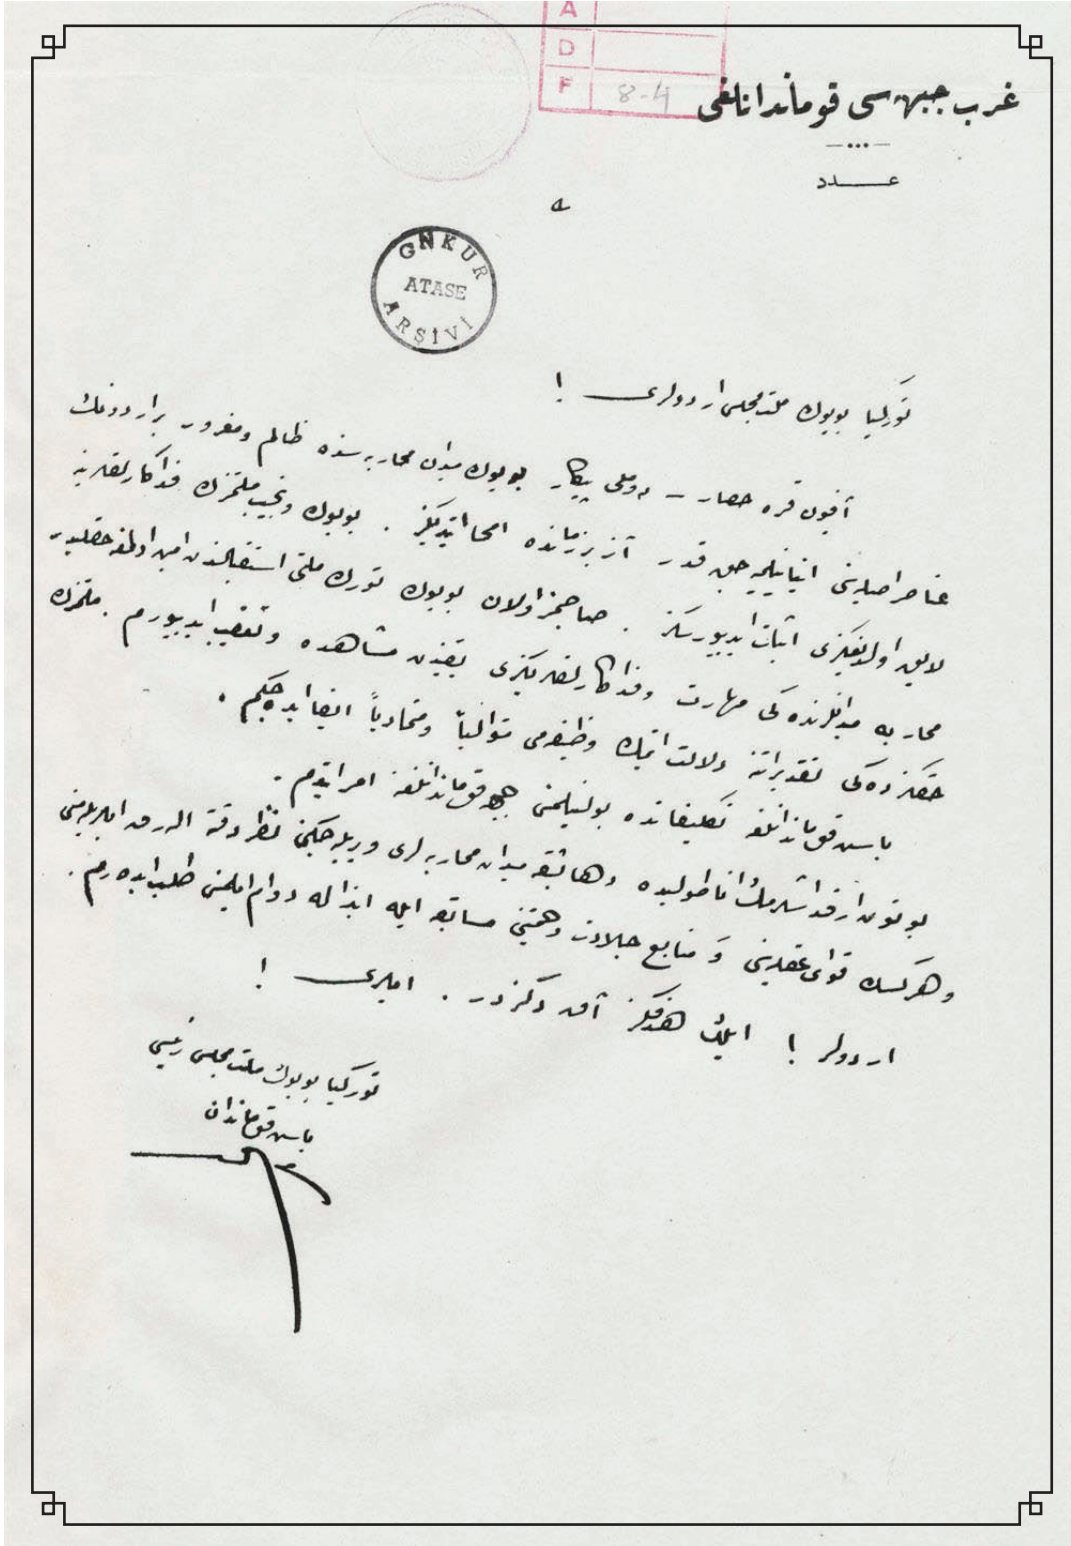 A
D
F 8-4
غرب جبهه سی قوماندانلغی
عدد
GNKUR
ATASE
ARŞİVİ
توركیا بویوك ملت مجلسی اردولری !
آفیون قره حصار - دوملو پیكار بویوك میدان محاربه سنده ظالم و مغرور بر اردونك
عناصر اصلیه سنی اینانیلمیه جق قدر آز بر زمانده امحا ایتدیكز . بویوك و نجیب ملتمزك فداكارلقلرینه
لایق اولدیغكزی اثبات ایدییورسكز . صاحبمز اولان بویوك تورك ملتی استقبالندن امین اولمغه حقلیدر
محاربه میدانلرنده كی مهارت و فداكارلقلریكزی یقیندن مشاهده و تعقیب ایدییورم . ملتمزك
حقكزده كی تقدیراتنه دلالت ایتمك وظیفه می متوالیاً و متمادیاً ایفا ایده جكم .
باش قوماندانلغه تكلیفاتده بولنیلمسنی جبهه قوماندانلغنه امر ایتدم .
بوتون آرقداشلرمك آناطولیده دها باشقه میدان محاربه لری ویریله جكنی نظر دقته آله رق ایلریله مسنی
و هركسك قوای عقلیه سنی و منابع جلادت و همتنی مسابقه ایله ابذاله دوام ایلمسنی طلب ایده رم .
اردولر ! ایلك هدفكز آق دكزدر . ایلری !
توركیا بویوك ملت مجلسی رئیسی
باش قوماندان